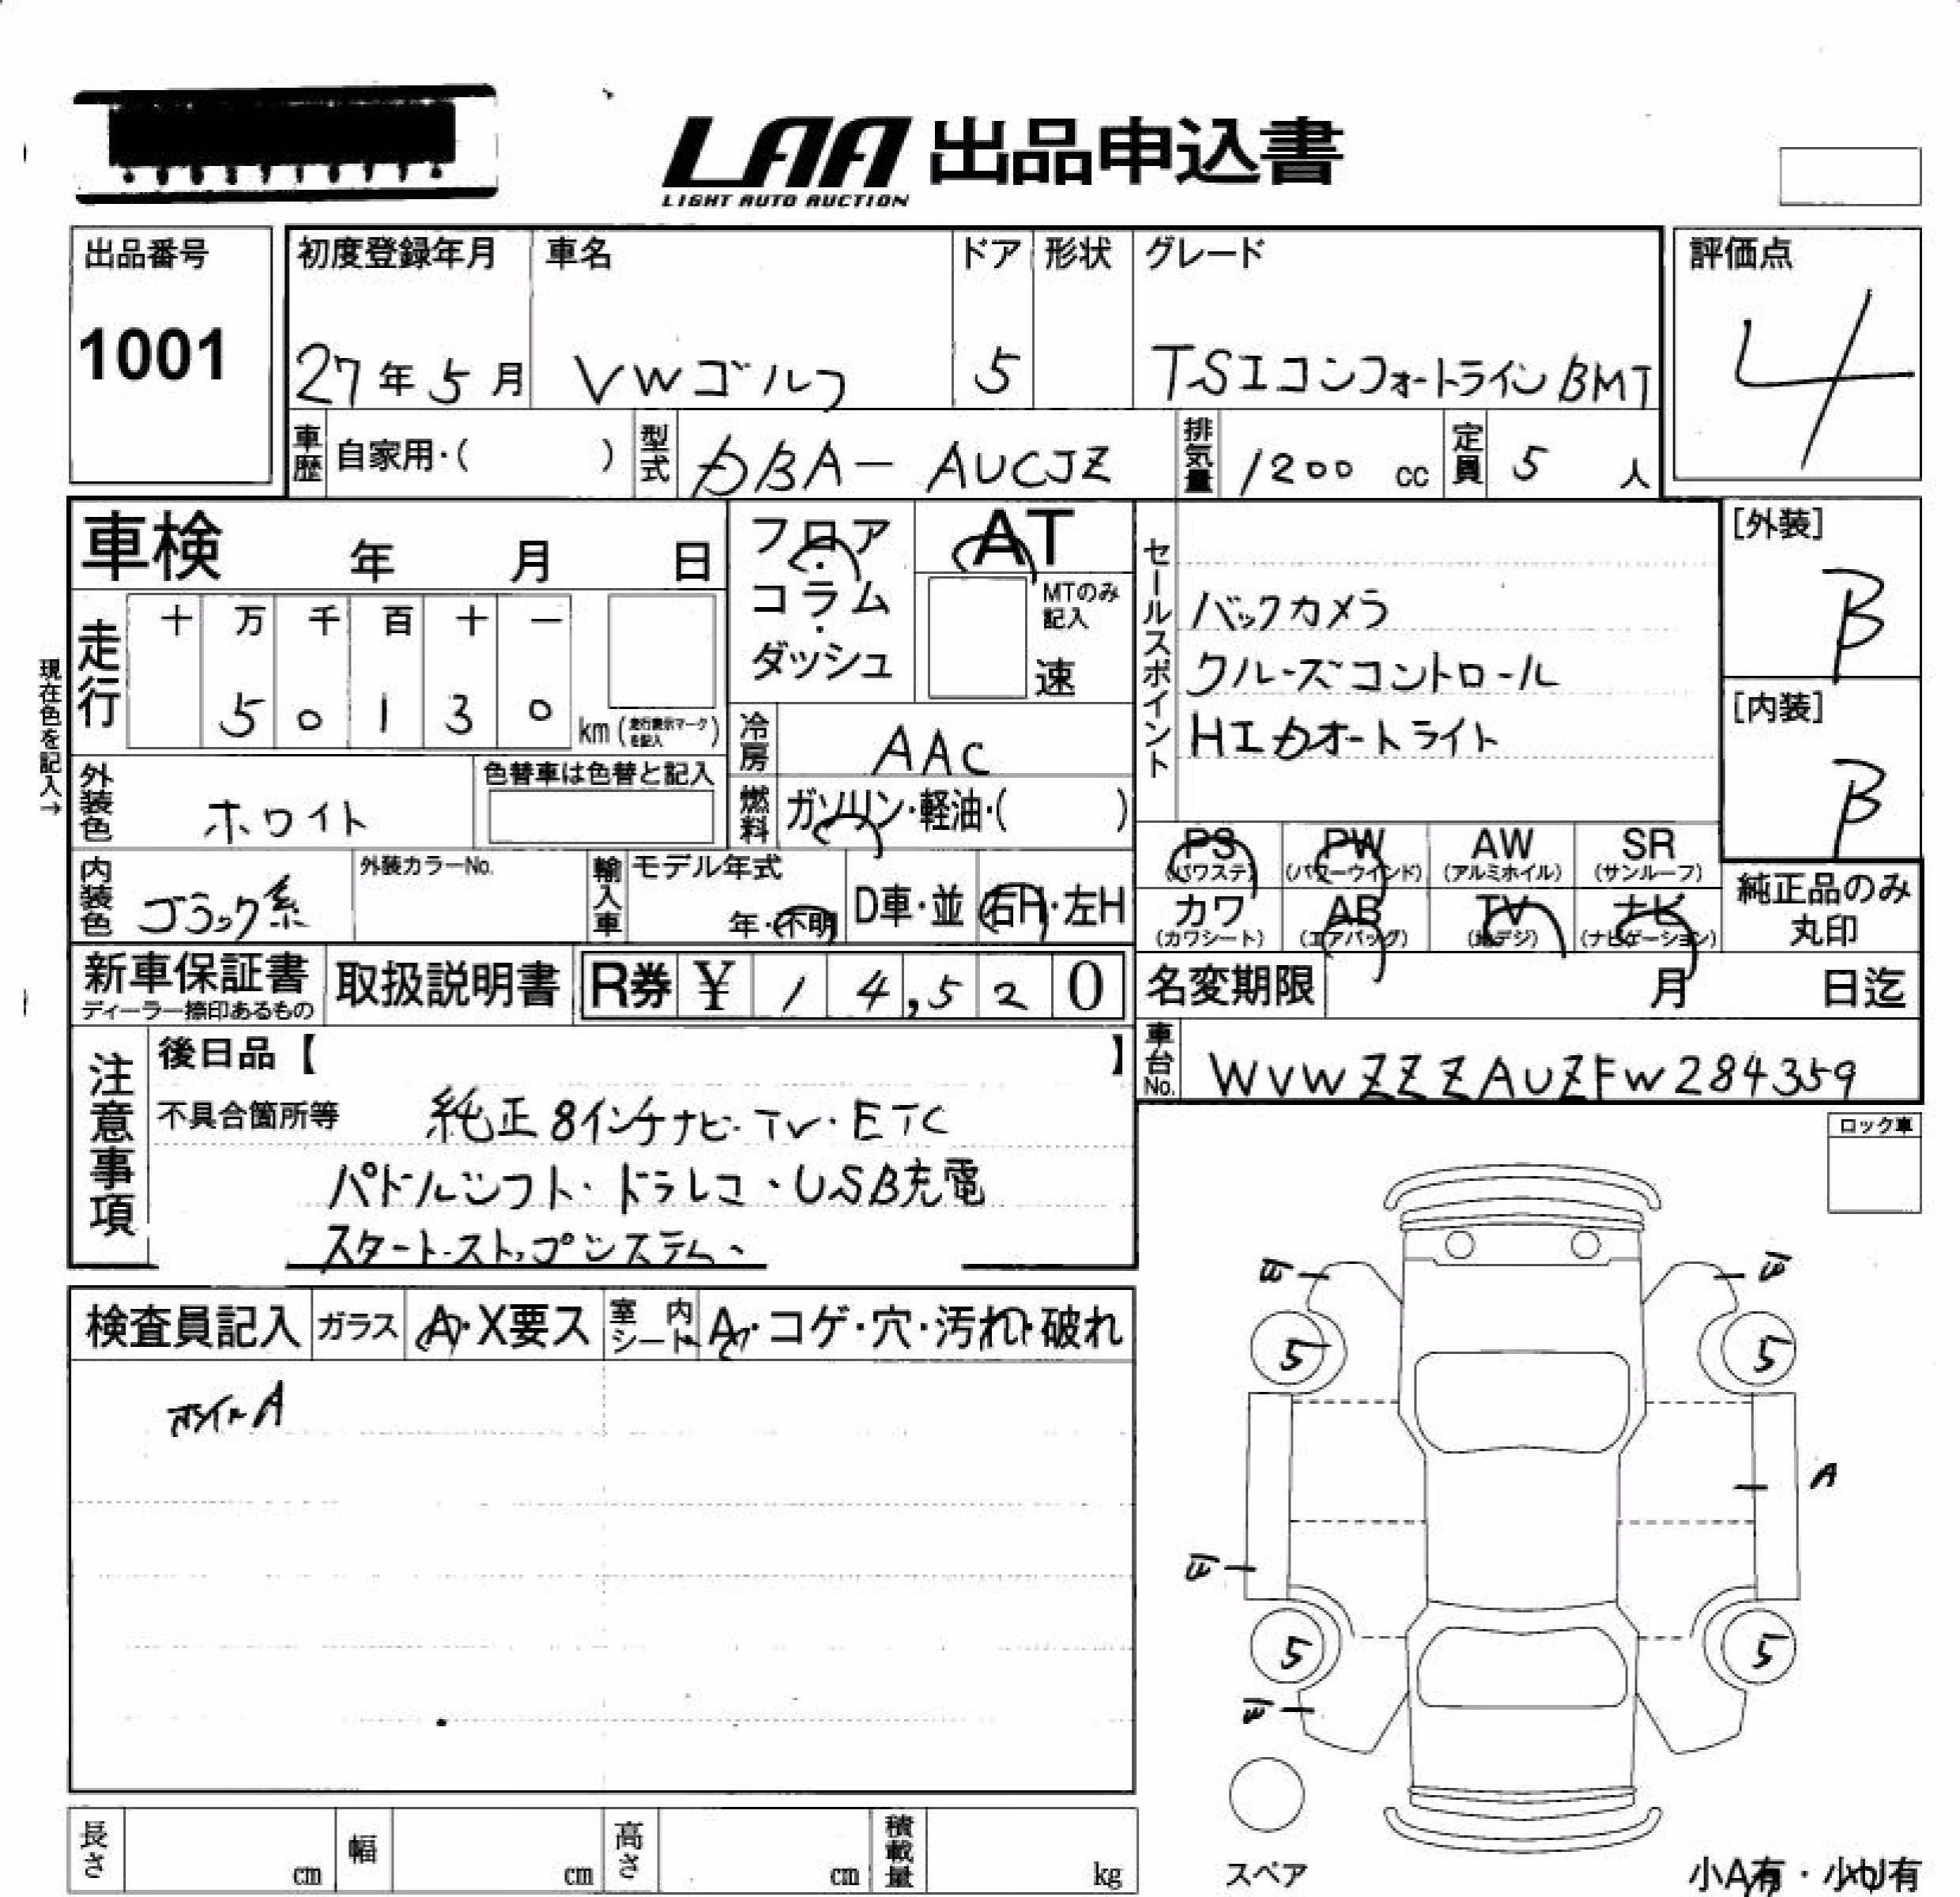 LAA 出品申込書
LIGHT AUTO AUCTION
出品番号
1001
初度登録年月
27年5月
車名
VWゴルフ
ドア
5
形状
グレード
TSIコンフォートラインBMT
評価点
4
車歴
自家用・( )
型式
DBA-AUCJZ
排気量
1200 cc
定員
5 人
車検 年 月 日
走行
十 万 千 百 十 一
5 0 1 3 0
km (走行表示マークを記入)
現在色を記入→
外装色
ホワイト
色替車は色替と記入
内装色
ブラック系
外装カラーNo.
フロア・コラム・ダッシュ
AT
MTのみ記入
速
冷房
AAC
燃料
ガソリン・軽油・( )
輸入車
モデル年式
年・不明
D車・並
右H・左H
セールスポイント
バックカメラ
クルーズコントロール
HIDオートライト
[外装]
B
[内装]
B
PS (パワステ)
PW (パワーウインド)
AW (アルミホイル)
SR (サンルーフ)
カワ (カワシート)
AB (エアバッグ)
TV (地デジ)
ナビ (ナビゲーション)
純正品のみ丸印
新車保証書
ディーラー捺印あるもの
取扱説明書
R券 ¥ 14,520
名変期限 月 日迄
車台No.
WVWZZZAUZFW284359
注意事項
後日品【 】
不具合箇所等 純正8インチナビ・TV・ETC
パドルシフト・ドラレコ・USB充電
スタートストップシステム・
ロック車
検査員記入
ガラス
A・X要ス
室内シート
A・コゲ・穴・汚れ・破れ
ホイルA
5
5
A
5
5
スペア
小A有・小U有
長さ cm
幅 cm
高さ cm
積載量 kg